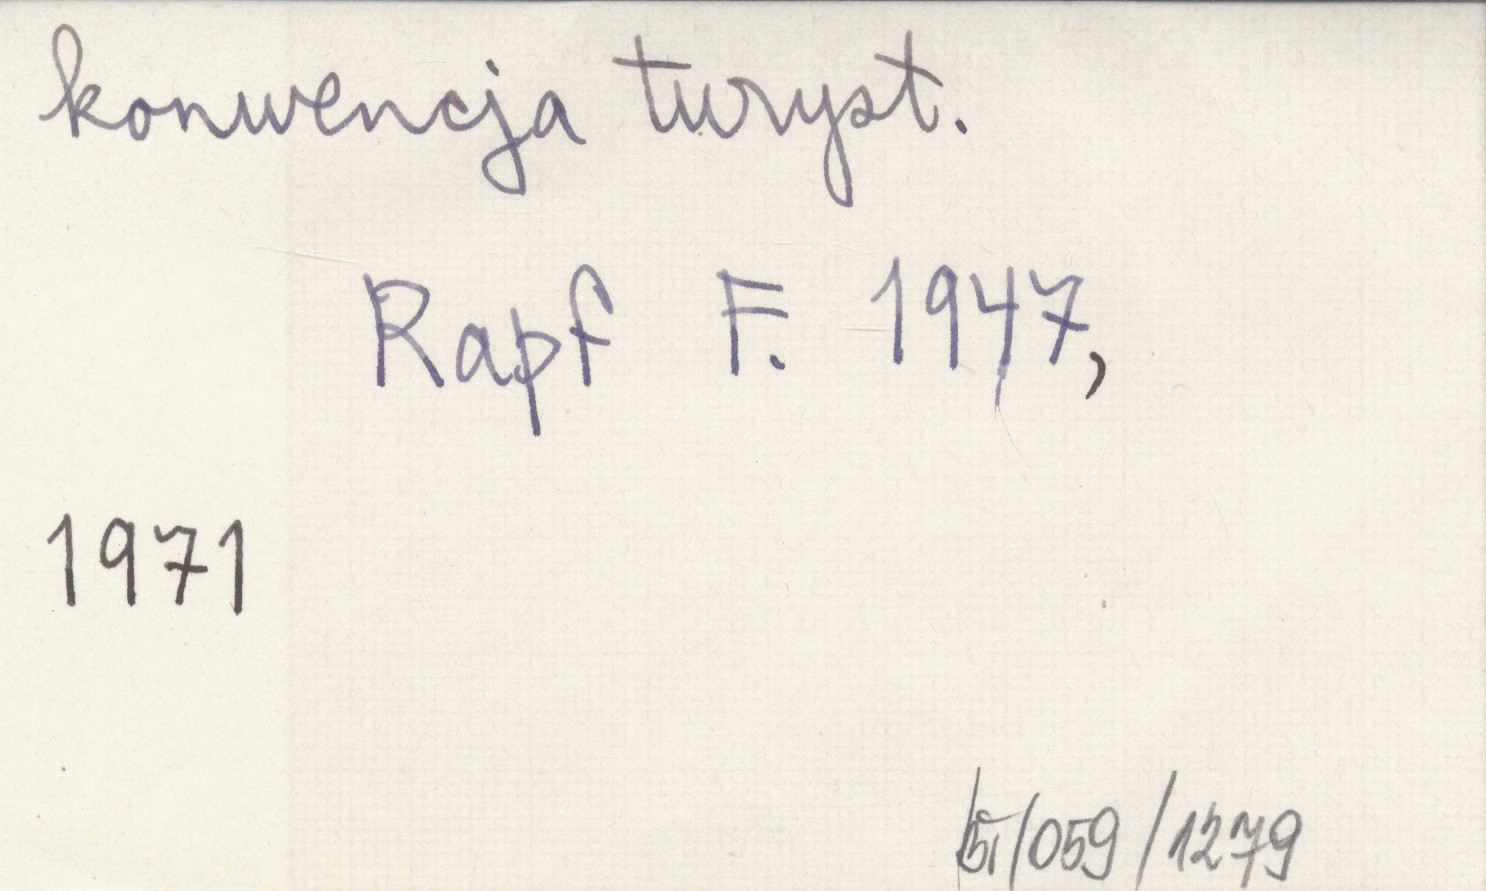 konwencja turyst.
Rapf F. 1947,
1971
/059/1279